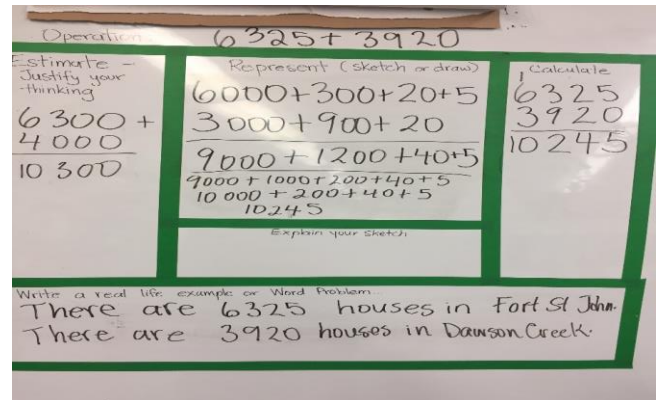 Operation
6325 + 3920
Estimate -
Justify your
thinking
6300 +
4000
10 300
Represent (sketch or draw)
6000+300+20+5
3000+900+20
9000+1200+40+5
9000+1000+200+40+5
10 000+200+40+5
10245
Explain your sketch
Calculate
1
6325
3920
10245
Write a real life example or Word Problem...
There are 6325 houses in Fort St John.
There are 3920 houses in Dawson Creek.